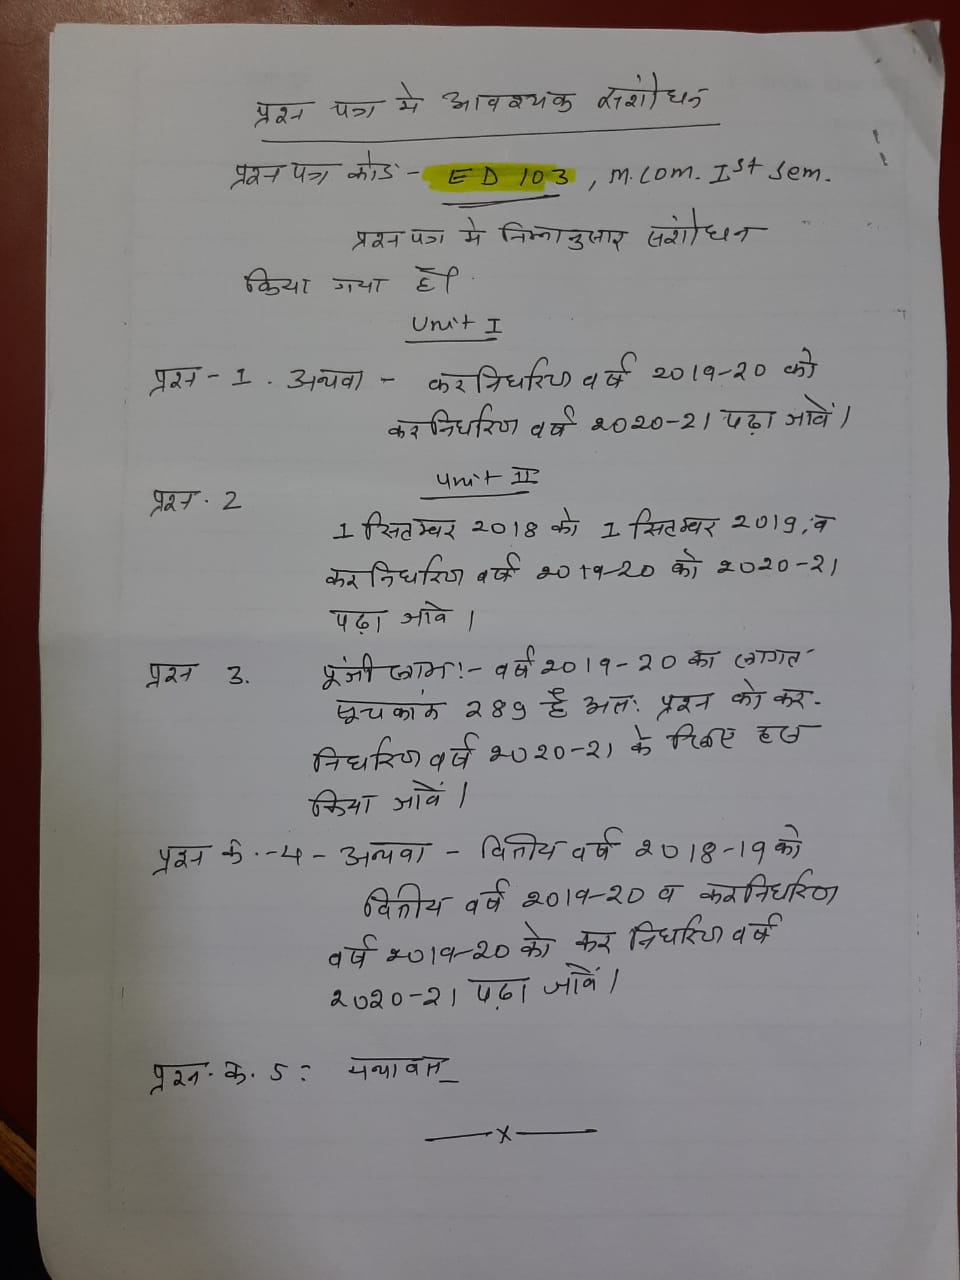 प्रश्न पत्र मे आवश्यक संशोधन
प्रश्न पत्र कोड:- ED 103, M.Com. Ist Sem.
प्रश्न पत्र मे निम्नानुसार संशोधन
किया गया है।
Unit I
प्रश्न - 1. अथवा - कर निर्धारण वर्ष 2019-20 को
कर निर्धारण वर्ष 2020-21 पढ़ा जावें।
Unit II
प्रश्न. 2
1 सितम्बर 2018 को 1 सितम्बर 2019, व
कर निर्धारण वर्ष 2019-20 को 2020-21
पढ़ा जावे।
प्रश्न 3. पूंजी लाभ:- वर्ष 2019-20 का लागत
सूचकांक 289 है अतः प्रश्न को कर-
निर्धारण वर्ष 2020-21 के लिए हल
किया जावें।
प्रश्न क्र.-4 - अथवा - वित्तीय वर्ष 2018-19 को
वित्तीय वर्ष 2019-20 व कर निर्धारण
वर्ष 2019-20 को कर निर्धारण वर्ष
2020-21 पढ़ा जावें।
प्रश्न. क्र. 5: यथावत्
—x—